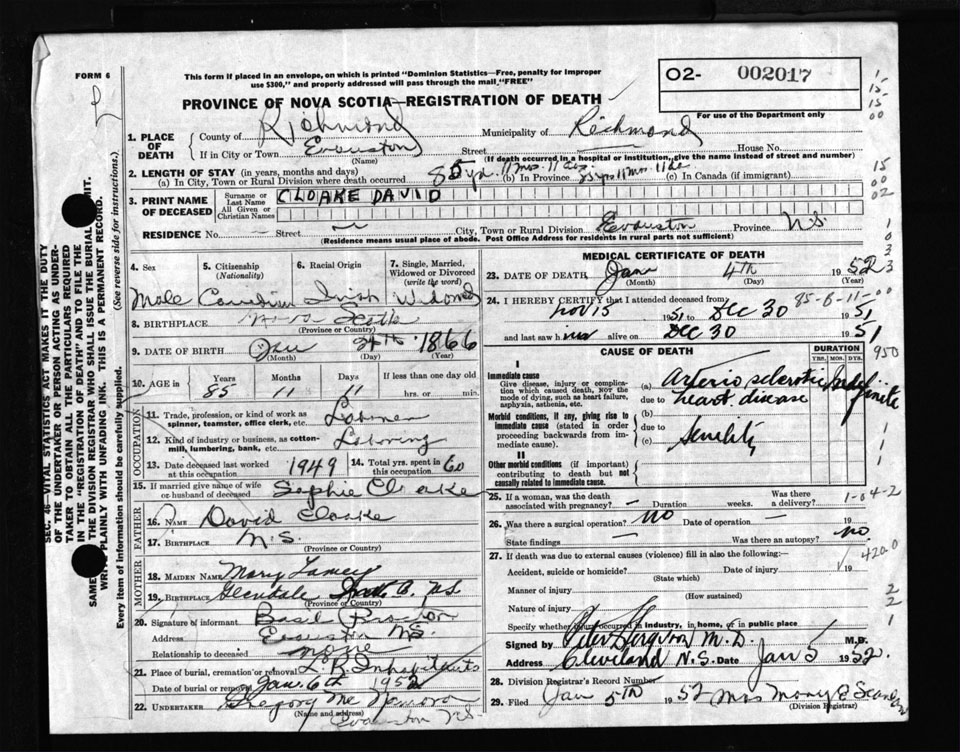 FORM 6
This form if placed in an envelope, on which is printed "Dominion Statistics—Free, penalty for improper
use $300," and properly addressed will pass through the mail "FREE"
O2- 002017
PROVINCE OF NOVA SCOTIA—REGISTRATION OF DEATH
For use of the Department only
1. PLACE OF DEATH
County of Richmond Municipality of Richmond
If in City or Town Evanston Street House No.
(Name) (If death occurred in a hospital or institution, give the name instead of street and number)
2. LENGTH OF STAY (in years, months and days)
(a) In City, Town or Rural Division where death occurred 85 yrs. 11 mos. 11 ds. (b) In Province 85 yrs 11 mos. 11 ds. (c) In Canada (if immigrant)
3. PRINT NAME OF DECEASED
Surname or Last Name
All Given or Christian Names
CLOAKE DAVID
RESIDENCE No. — Street City, Town or Rural Division Evanston Province N.S.
(Residence means usual place of abode. Post Office Address for residents in rural parts not sufficient)
4. Sex
5. Citizenship (Nationality)
6. Racial Origin
7. Single, Married, Widowed or Divorced (write the word)
Male Canadian Irish Widowed
8. BIRTHPLACE Nova Scotia
(Province or Country)
9. DATE OF BIRTH 24th 1866
(Month) (Day) (Year)
10. AGE in Years Months Days If less than one day old
85 11 11 hrs. or min.
OCCUPATION
11. Trade, profession, or kind of work as spinner, teamster, office clerk, etc. Laborer
12. Kind of industry or business, as cotton-mill, lumbering, bank, etc. Laboring
13. Date deceased last worked at this occupation 1949
14. Total yrs. spent in this occupation 60
15. If married give name of wife or husband of deceased Sophie Cloake
FATHER
16. NAME David Cloake
17. BIRTHPLACE N.S.
(Province or Country)
MOTHER
18. MAIDEN NAME Mary
19. BIRTHPLACE Glendale C.B. N.S.
(Province or Country)
20. Signature of informant Basil
Address Evanston N.S.
Relationship to deceased none
21. Place of burial, cremation or removal L. R. Inhabitants
Date of burial or removal Jan. 6th 1952
22. UNDERTAKER Gregory
(Name and address) Evanston N.S.
MEDICAL CERTIFICATE OF DEATH
23. DATE OF DEATH Jan 4th 1952
(Month) (Day) (Year)
24. I HEREBY CERTIFY that I attended deceased from
Nov 15 1951 to Dec 30 1951
and last saw him alive on Dec 30 1951
85-8-11-00
CAUSE OF DEATH
DURATION
YRS. MOS. DYS.
950
I
Immediate cause
Give disease, injury or complication which caused death, NOT the mode of dying, such as heart failure, asphyxia, asthenia, etc.
(a) Arterio sclerotic Indefinite
due to heart disease
Morbid conditions, if any, giving rise to immediate cause (stated in order proceeding backwards from immediate cause).
(b)
due to
(c) Senility
II
Other morbid conditions (if important) contributing to death but not causally related to immediate cause.
25. If a woman, was the death associated with pregnancy? — Duration weeks. Was there a delivery?
1-04-2
26. Was there a surgical operation? No Date of operation — 19
State findings — Was there an autopsy? no.
27. If death was due to external causes (violence) fill in also the following:—
4200
Accident, suicide or homicide? Date of injury 19
(State which)
Manner of injury
(How sustained)
Nature of injury
Specify whether injury occurred in industry, in home, or in public place
Signed by M.D. M.D.
Address Cleveland N.S. Date Jan 5 1952.
28. Division Registrar's Record Number
29. Filed Jan 5th 1952 Mrs Mary E
(Division Registrar)
SEC. 46—VITAL STATISTICS ACT MAKES IT THE DUTY
OF THE UNDERTAKER OR PERSON ACTING AS UNDERTAKER TO OBTAIN ALL THE PARTICULARS REQUIRED
IN THE "REGISTRATION OF DEATH" AND TO FILE THE
SAME THE DIVISION REGISTRAR WHO SHALL ISSUE THE BURIAL PERMIT.
WRITE PLAINLY WITH UNFADING INK. THIS IS A PERMANENT RECORD.
Every item of information should be carefully supplied. (See reverse side for instructions.)